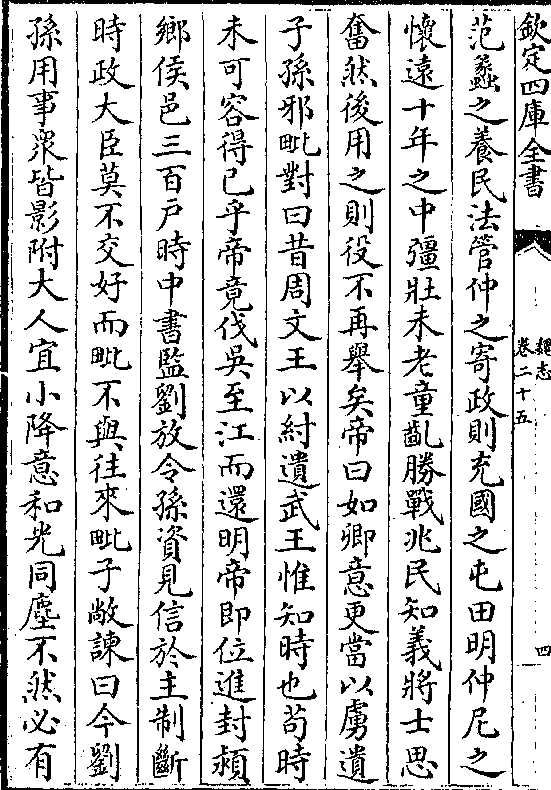 欽定四庫全書
魏志
卷二十五
四
范蠡之養民法管仲之寄政則充國之屯田明仲尼之
懷遠十年之中彊壯未老童齓勝戰兆民知義將士思
奮然後用之則役不再舉矣帝曰如卿意更當以虜遺
子孫邪毗對曰昔周文王以紂遺武王惟知時也茍時
未可容得已乎帝竟伐吳至江而還明帝即位進封潁
鄉侯邑三百戸時中書監劉放令孫資見信於主制斷
時政大臣莫不交好而毗不與往來毗子敞諫曰今劉
孫用事衆皆影附大人宜小降意和光同塵不然必有